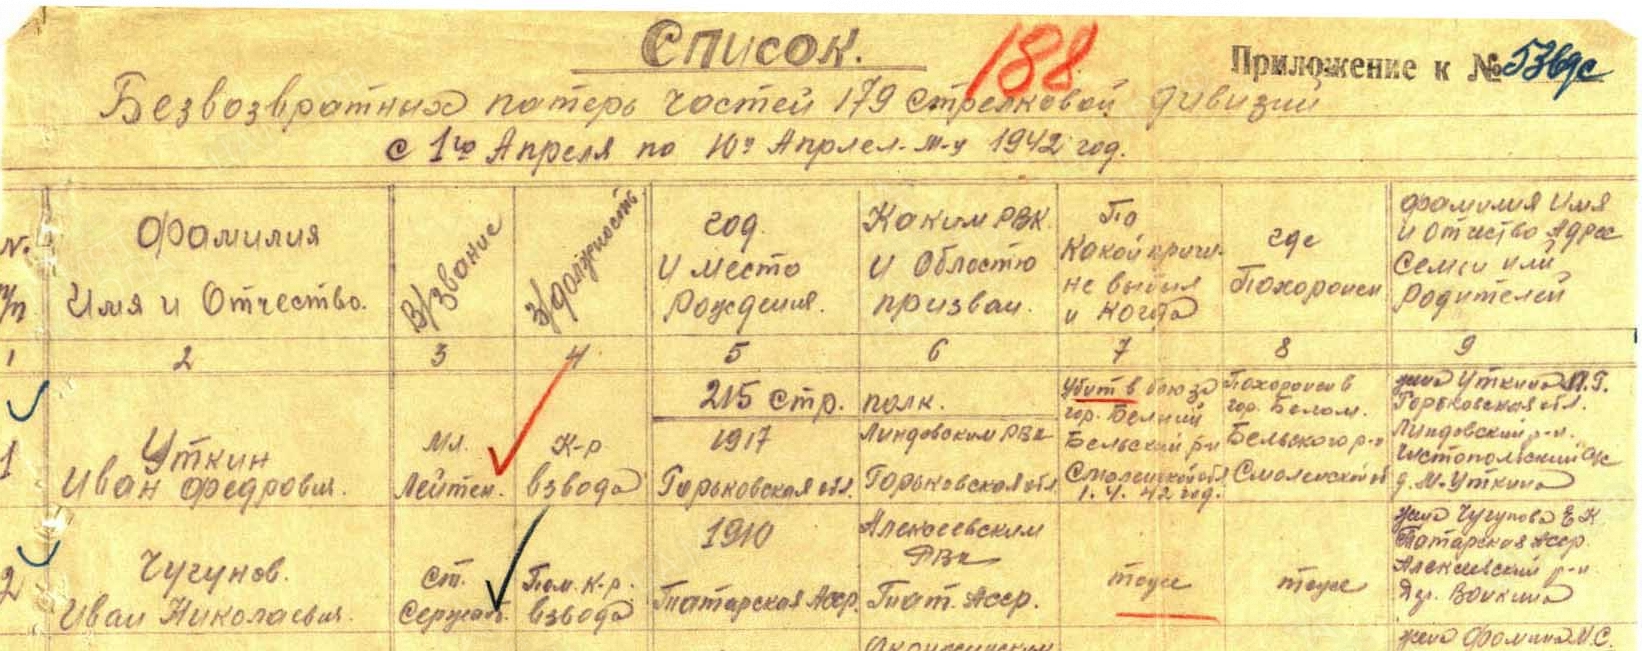 Список.
188
Приложение к № 53вдс
Безвозвратных потерь частей 179 стрелковой дивизий
с 1го Апреля по 10е Апрлел. м-ц 1942 год.
№ п/п
Фамилия
Имя и Отчество.
В/звание
З/должность
год
И место
Рождения.
Каким РВК
И Областю
призван.
По
Какой причи-
не выбыл
и когда
где
Похоронен
Фамилия Имя
и Отчество Адрес
Семьи или
Родителей
1 2 3 4 5 6 7 8 9
215 стр. полк.
1
Уткин
Иван Федрович.
Мл.
Лейтен.
К-р
взвода
1917
Горьковская обл.
Линдовским РВк
Горьковская обл
Убит в бою за
гор. Белый
Бельский р-н
Смоленской обл
1. 4. 42 год.
Похоронен в
гор. Белом.
Бельского р-н
Смоленской об
жена Уткина П.Г.
Горьковская обл.
Линдовский р-н.
Чистопольский с/с
д. М. Уткина
2
Чугунов.
Иван Николаевич.
Ст.
Сержант.
Пом. К-р.
взвода
1910
Татарская Асср.
Алексеевским
РВк
Тат. Асср.
тоже
тоже
жена Чугунова Е К
Татарская Асср.
Алексеевский р-н
жена Фомина М.С.